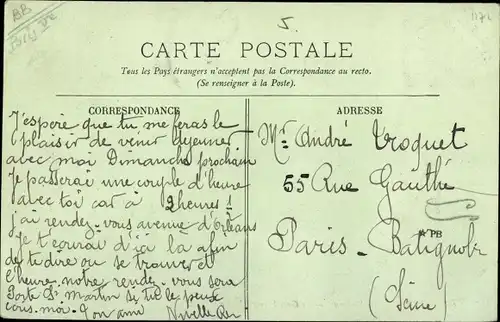 5
1172
BB
CARTE POSTALE
Tous les Pays étrangers n'acceptent pas la Correspondance au recto.
(Se renseigner à la Poste).
CORRESPONDANCE
J'espère que tu me feras le
plaisir de venir déjeuner
avec moi Dimanche prochain
Je passerai une couple d'heure
avec toi car à 2 heures 1
j'ai rendez-vous avenue d'Orléans
Je t'écrirai d'ici là afin
de te dire ou se trouver et
l'heure. notre rendez-vous sera
Porte St Martin si tu le peux
Ton ami
ADRESSE
Mr André Troquet
55 Rue Gauthé
Paris - Batignole
*PB
(Seine)